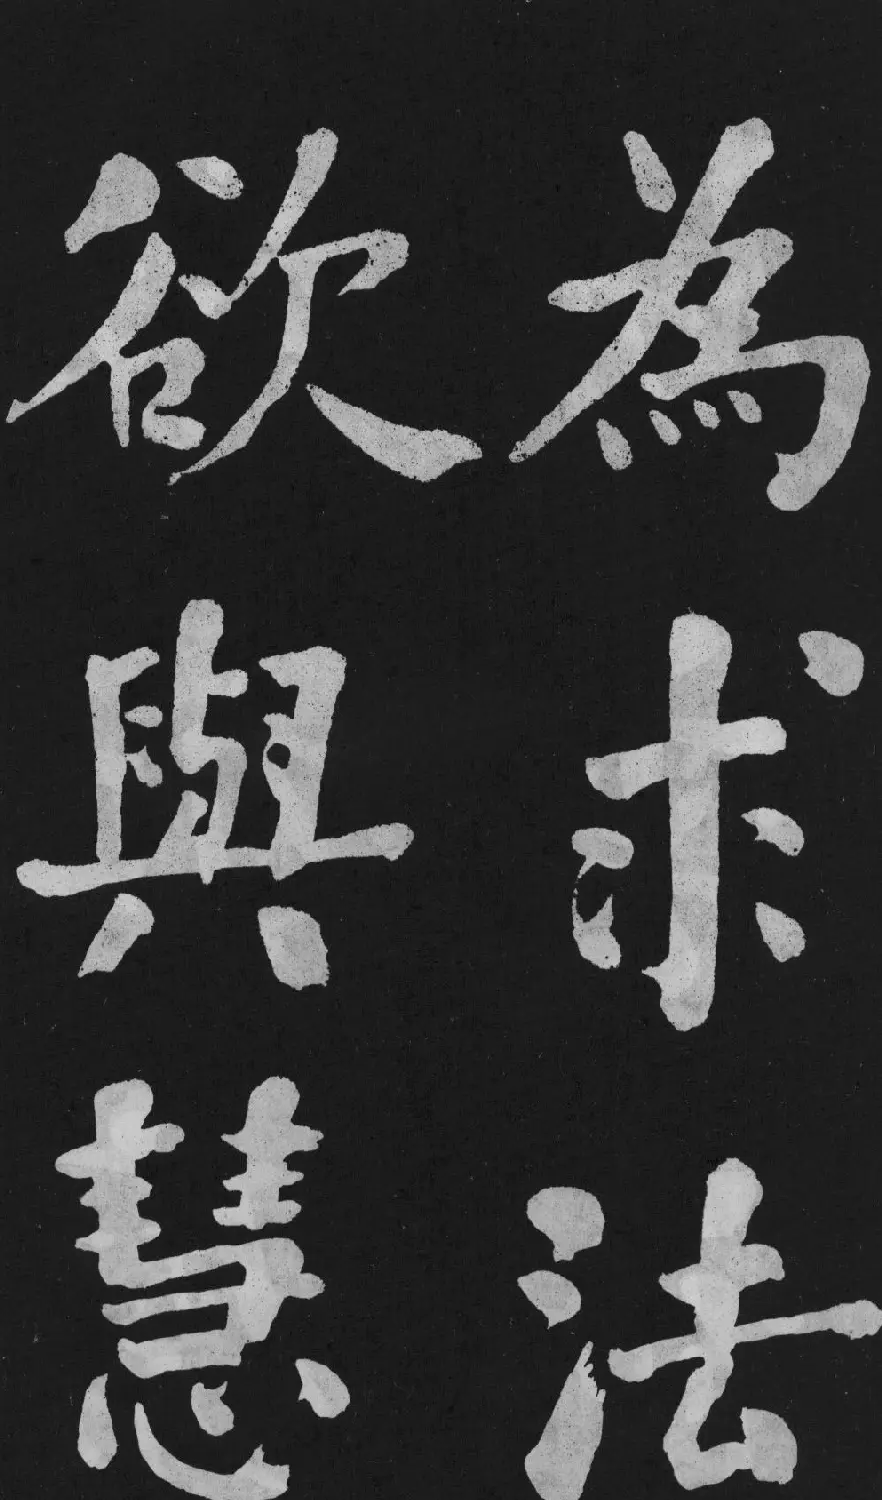 為求法
欲與慧